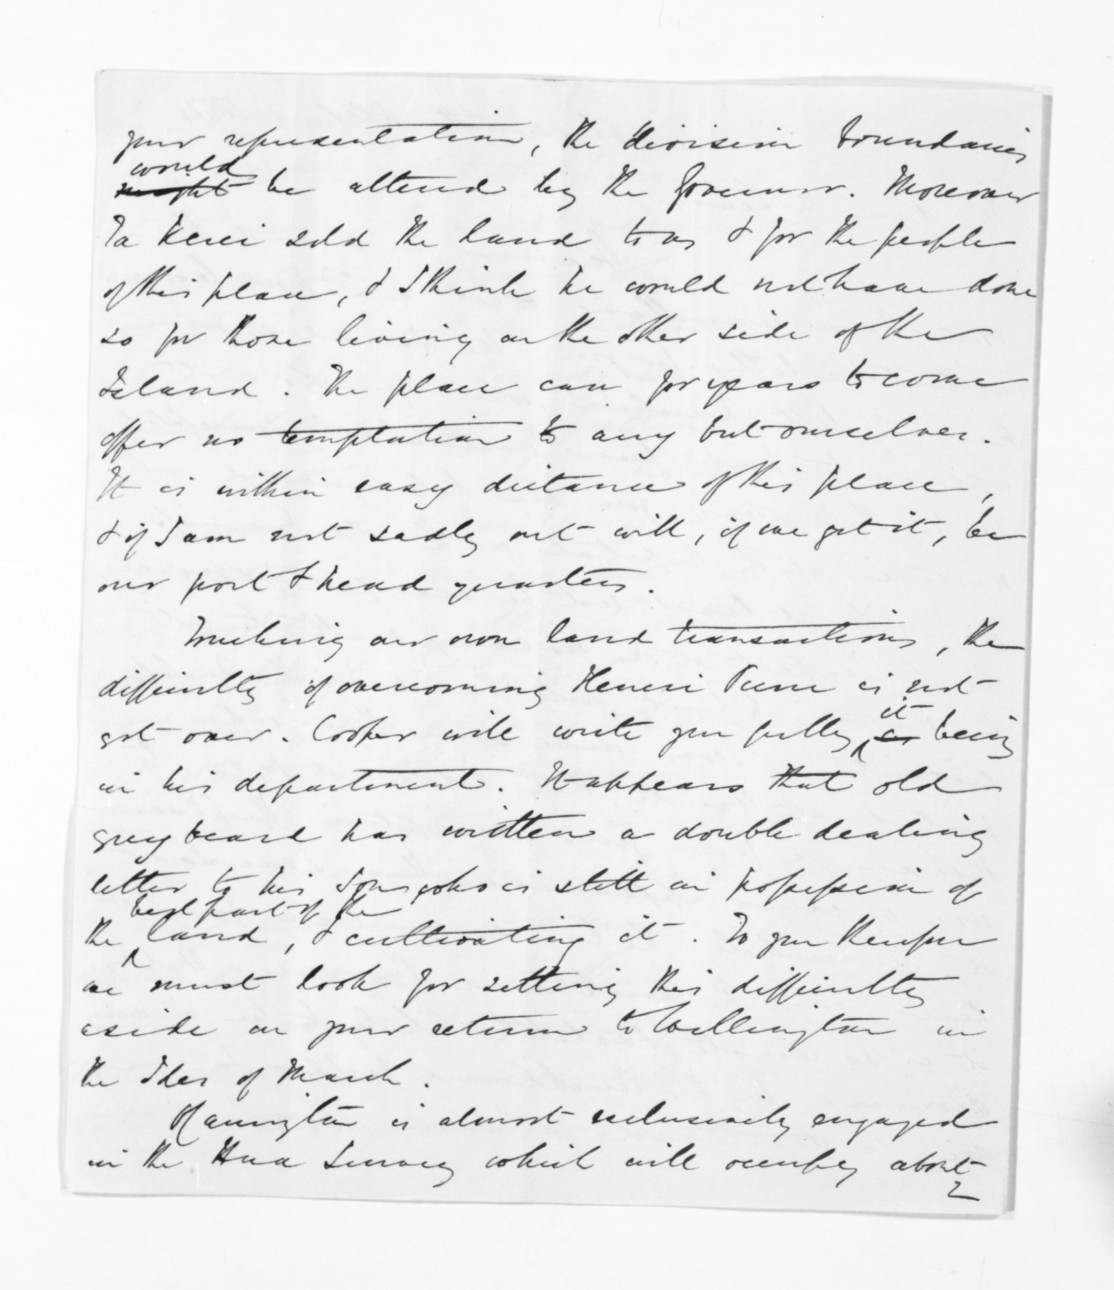 your representation, the division boundaries
would
might be altered by the Governor. Moreover
Te Kerei sold the land to us & for the people
of this place, & I think he would not have done
so for those living on the other side of the
Island. The place can for years to come
offer no temptation to any but ourselves.
It is within easy distance of this place,
& if I am not sadly out will, if we get it, be
our port & head quarters.
Touching our own land transactions, the
difficulty of overcoming Henere is not
it
got over. Cooper will write you fully, as being
in his department. It appears that old
grey beard has written a double dealing
letter to his Son, who is still in possession of
best part of the
the land, & cultivating it. To you therefore
we must look for setting this difficulty
aside on your return to Wellington in
the Ides of March.
is almost exclusively engaged
in the Hua Survey which will occupy about
2